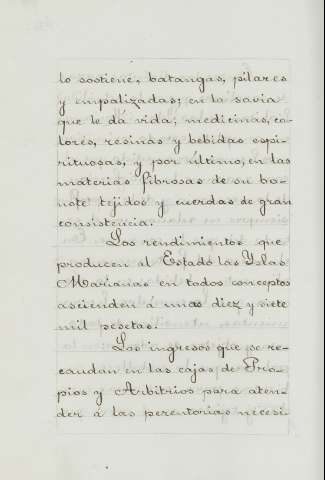 lo sostiene, batangas, pilares
y empalizadas; en la savia
que le dá vida; medicinas, co-
lores, resinas y bebidas espi-
rituosas, y por último, en las
materias fibrosas de su bo-
note tejidos y cuerdas de gran
consistencia.
Los rendimientos que
producen al Estado las Yslas
Marianas en todos conceptos
ascienden á unas diez y siete
mil pesetas.
Los ingresos que se re-
caudan en las cajas de Pro-
pios y Arbitrios para aten-
der á las perentorias necesi-